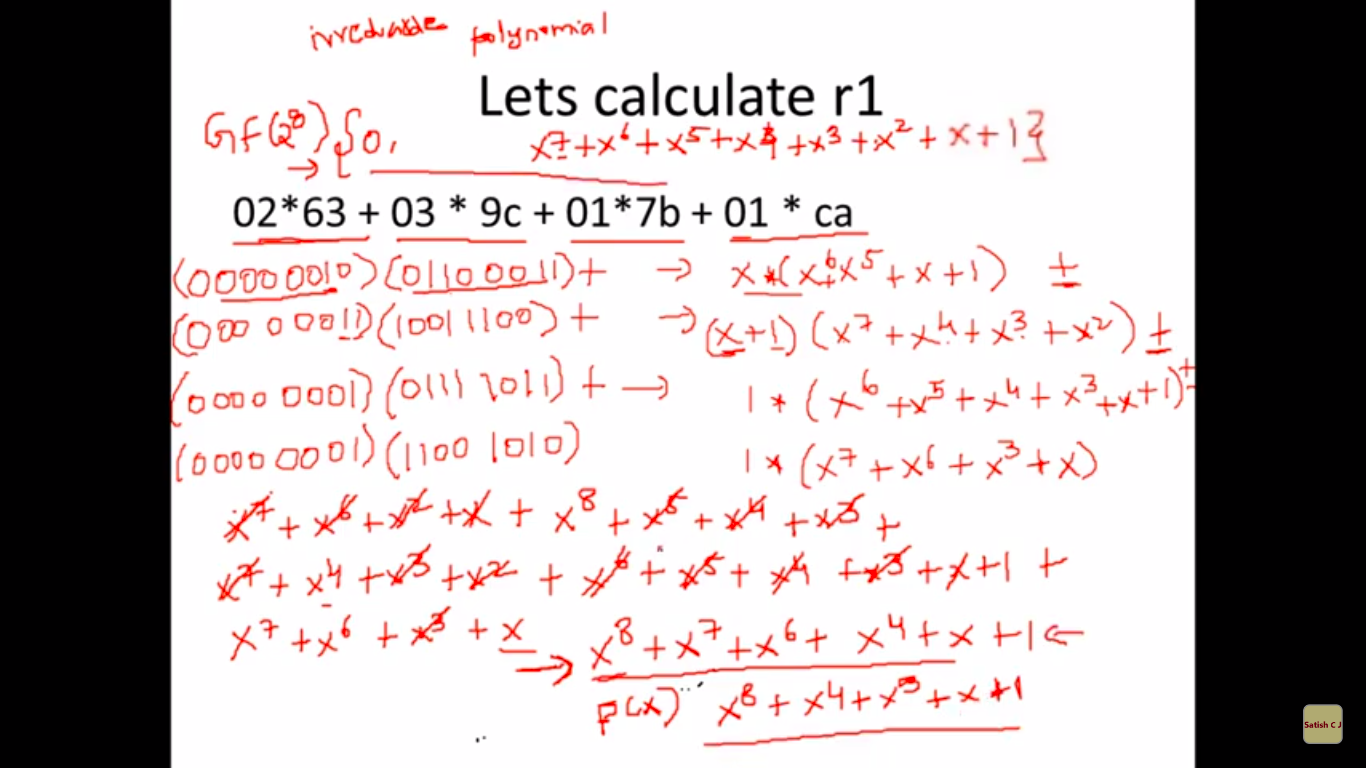 irreducable polynomial
Lets calculate r1
GF(2⁸) {0, x⁷ + x⁶ + x⁵ + x⁴ + x³ + x² + x + 1}
→
02*63 + 03 * 9c + 01*7b + 01 * ca
(0000 0010) (0110 0011) + → x * (x⁶ + x⁵ + x + 1) ±
(000 0 0011) (1001 1100) + → (x+1) (x⁷ + x⁴ + x³ + x²) ±
(0000 0001) (0111 1011) + → 1 * (x⁶ + x⁵ + x⁴ + x³ + x + 1) ±
(0000 0001) (1100 1010) 1 * (x⁷ + x⁶ + x³ + x)
x⁷ + x⁶ + x² + x + x⁸ + x⁵ + x⁴ + x³ +
x⁷ + x⁴ + x³ + x² + x⁶ + x⁵ + x⁴ + x³ + x + 1 +
x⁷ + x⁶ + x³ + x → x⁸ + x⁷ + x⁶ + x⁴ + x + 1 ←
P(x) x⁸ + x⁴ + x³ + x + 1
Satish C J